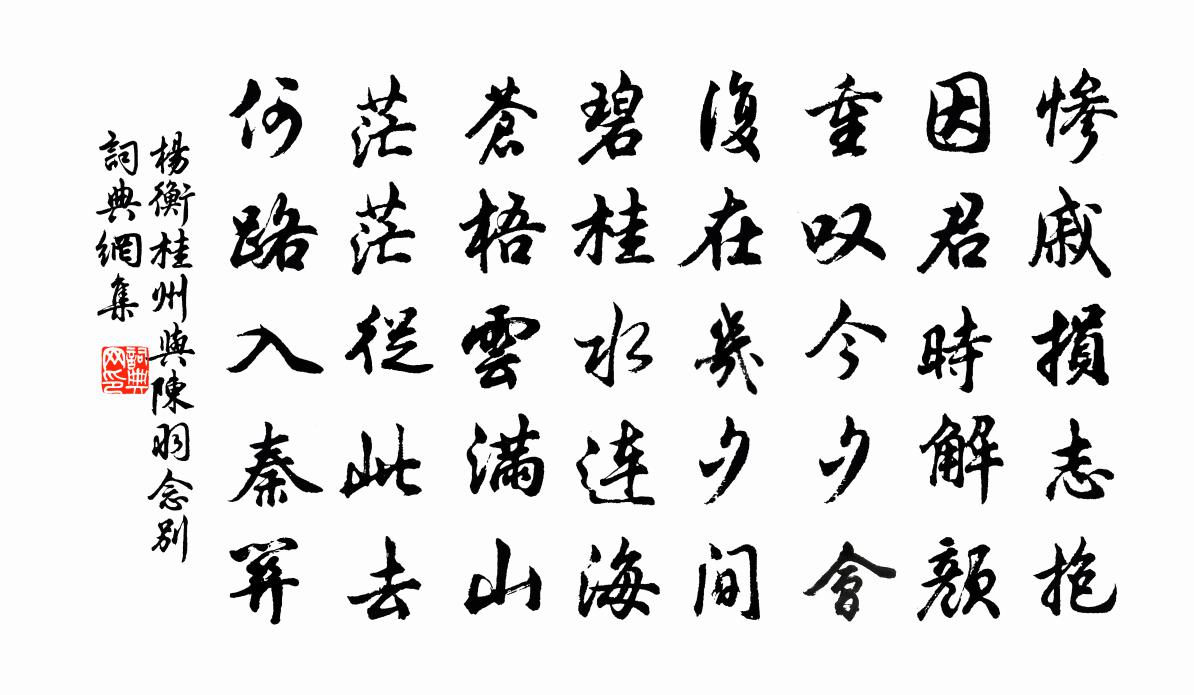 惨戚損志抱
因君時解顔
重叹今夕會
復在幾夕間
碧桂水連海
蒼梧雲滿山
茫茫從此去
何路入秦関
楊衡桂州與陳羽念別
詞典網集
詞典网印